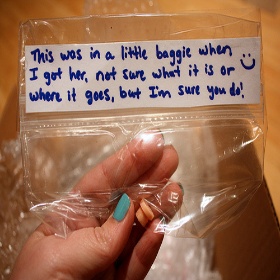 This was in a little baggie when
I got her, not sure what it is or
where it goes, but I'm sure you do!